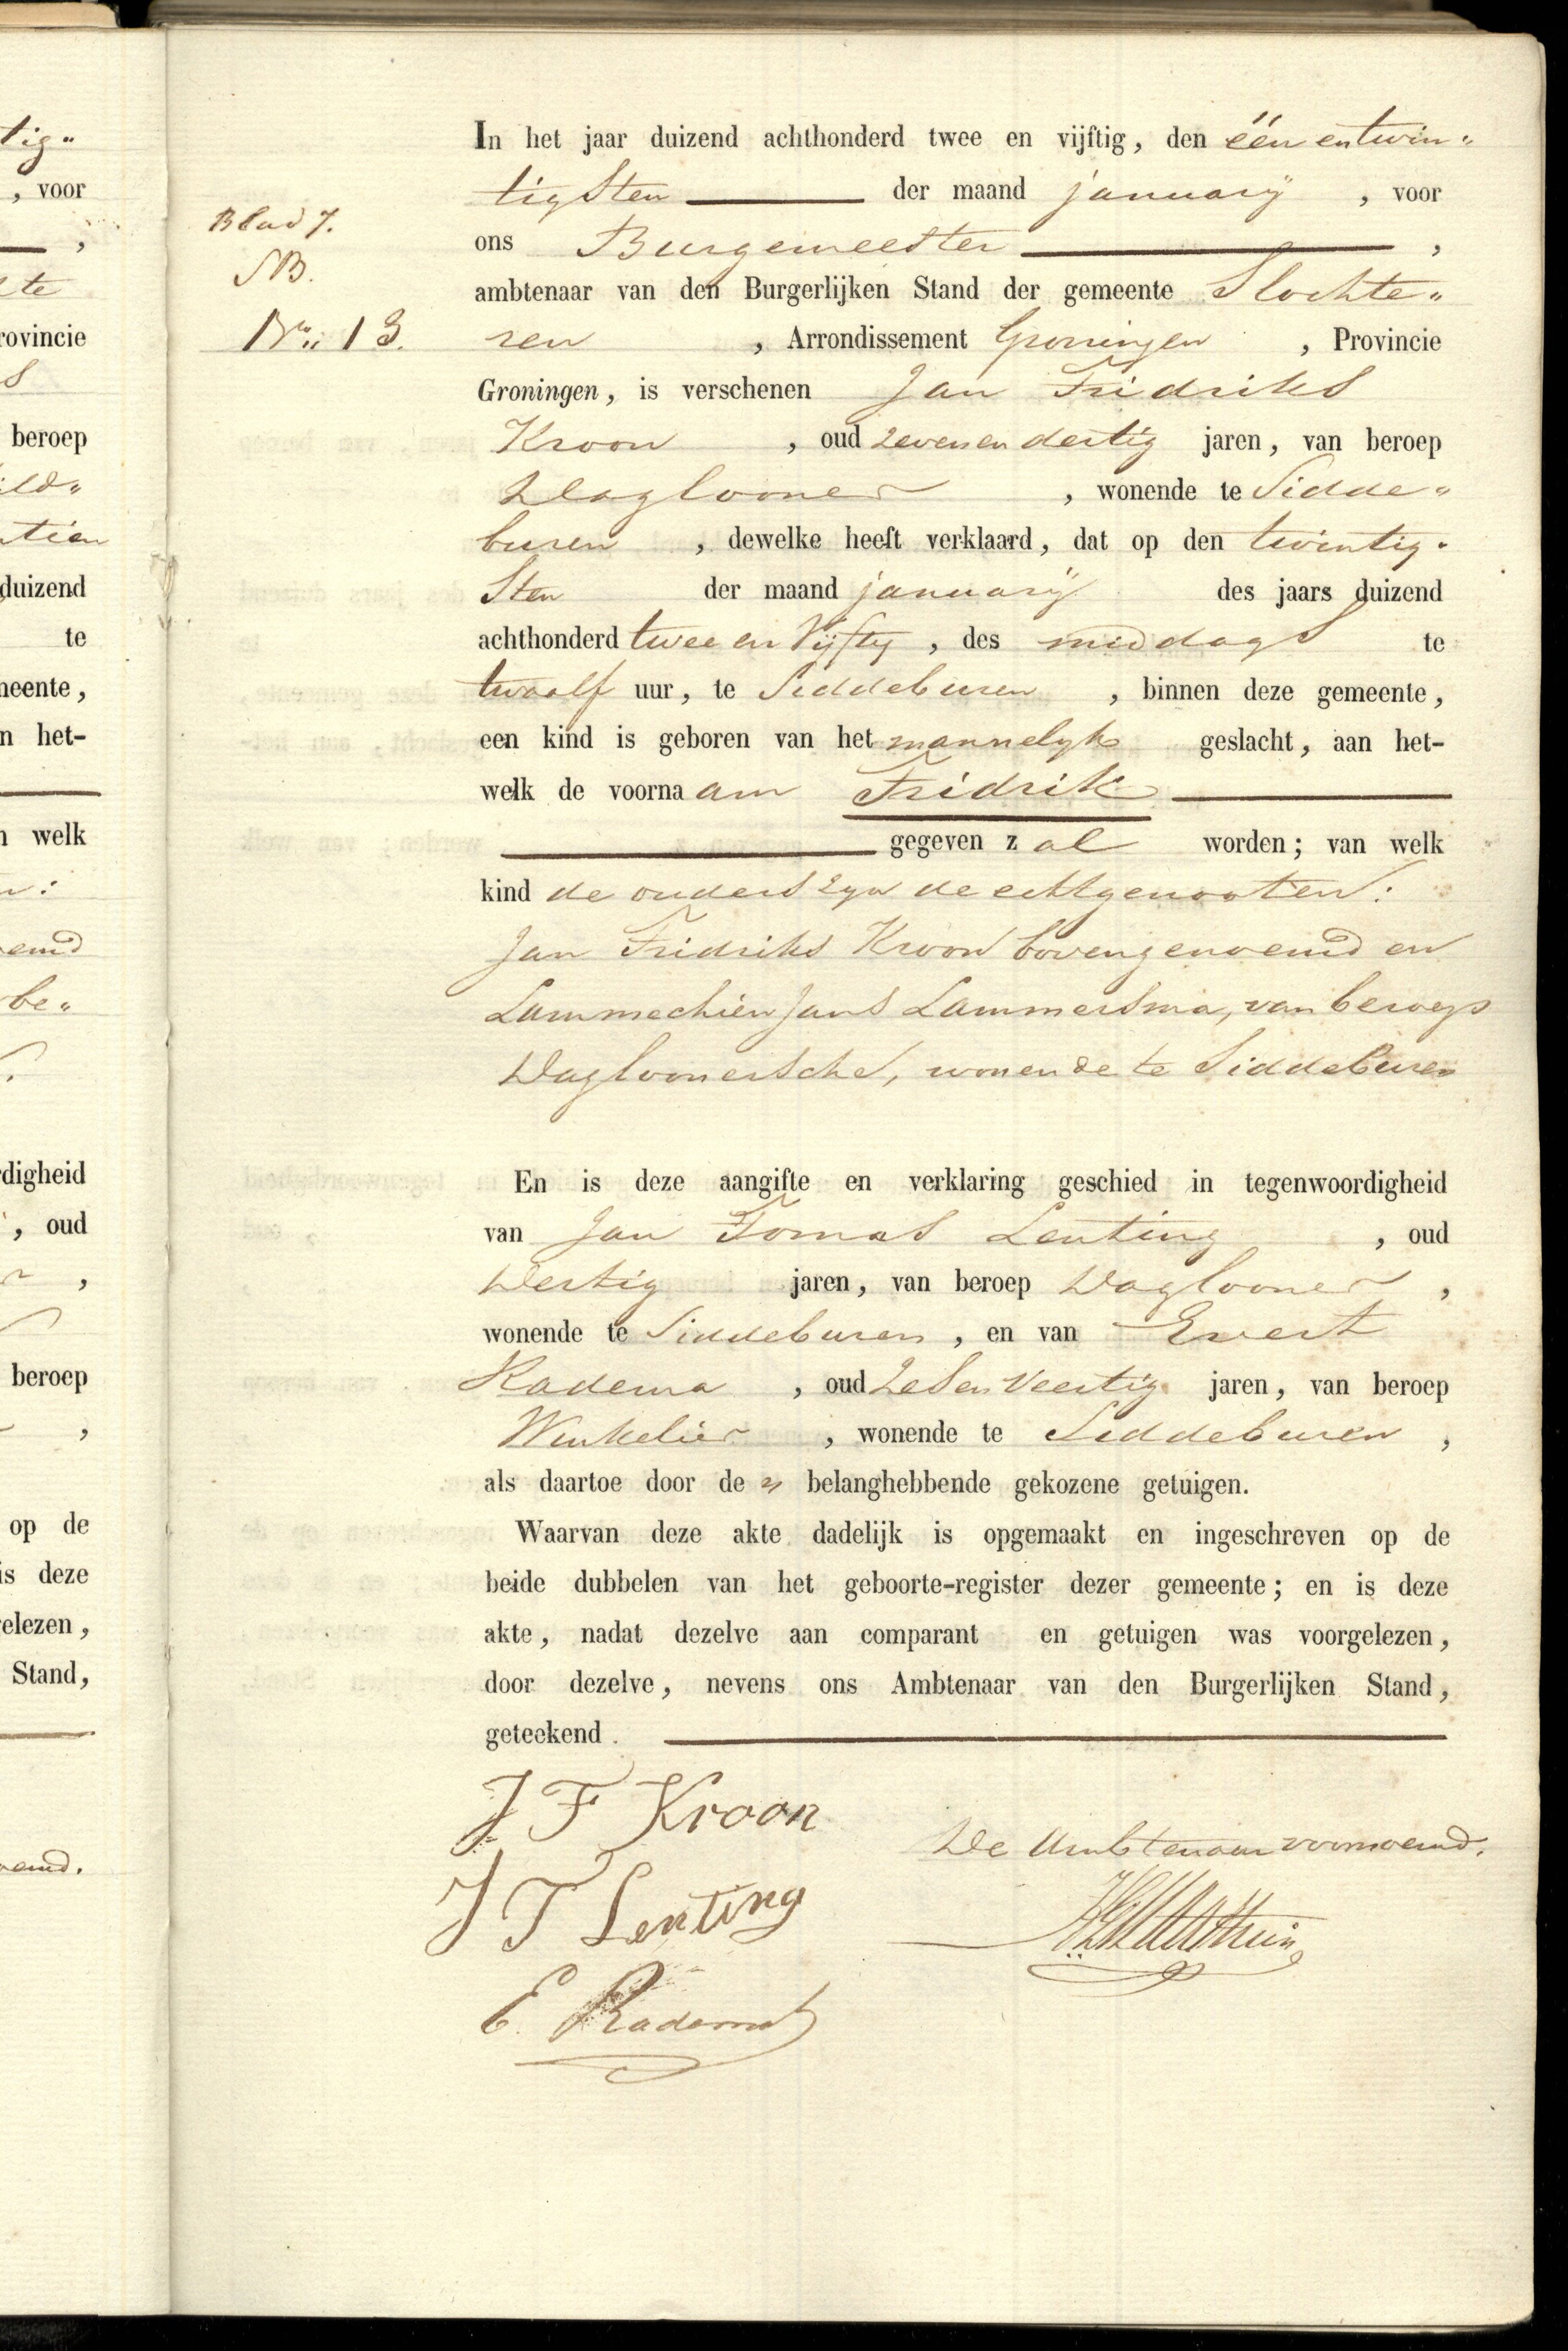 tig„
, voor
,
te
rovincie
s
beroep
ild„
tien
duizend
te
meente,
n het-
n welk
n:
oemd
be„
digheid
, oud
,
beroep
,
op de
is deze
elezen,
Stand,
oemd.
Blad 7.
SB.
No: 13.
In het jaar duizend achthonderd twee en vijftig, den één en twin„
tigsten der maand january , voor
ons Burgemeester ,
ambtenaar van den Burgerlijken Stand der gemeente Slochte„
ren , Arrondissement Groningen , Provincie
Groningen, is verschenen Jan Fridriks
Kroon , oud zeven en dertig jaren, van beroep
Daglooner , wonende te Sidde„
buren , dewelke heeft verklaard, dat op den twintig„
sten der maand january des jaars duizend
achthonderd twee en Vyfty , des middags te
twaalf uur, te Siddeburen , binnen deze gemeente,
een kind is geboren van het mannelyk geslacht, aan het-
welk de voornaam Fridrik
gegeven zal worden; van welk
kind de ouders zyn de echtgenooten:
Jan Fridriks Kroon bovengenoemd en
Lammechien Jans Lammersma, van beroep
Dagloonersche, wonende te Siddeburen
En is deze aangifte en verklaring geschied in tegenwoordigheid
van Jan Tomas Lenting , oud
Dertig jaren, van beroep Daglooner ,
wonende te Siddeburen , en van Evert
Radema , oud Zes en Veertig jaren, van beroep
Winkelier , wonende te Siddeburen ,
als daartoe door de n belanghebbende gekozene getuigen.
Waarvan deze akte dadelijk is opgemaakt en ingeschreven op de
beide dubbelen van het geboorte-register dezer gemeente; en is deze
akte, nadat dezelve aan comparant en getuigen was voorgelezen,
door dezelve, nevens ons Ambtenaar van den Burgerlijken Stand,
geteekend.
J F Kroon
J T Lenting
E. Radema
De Ambtenaar voornoemd.